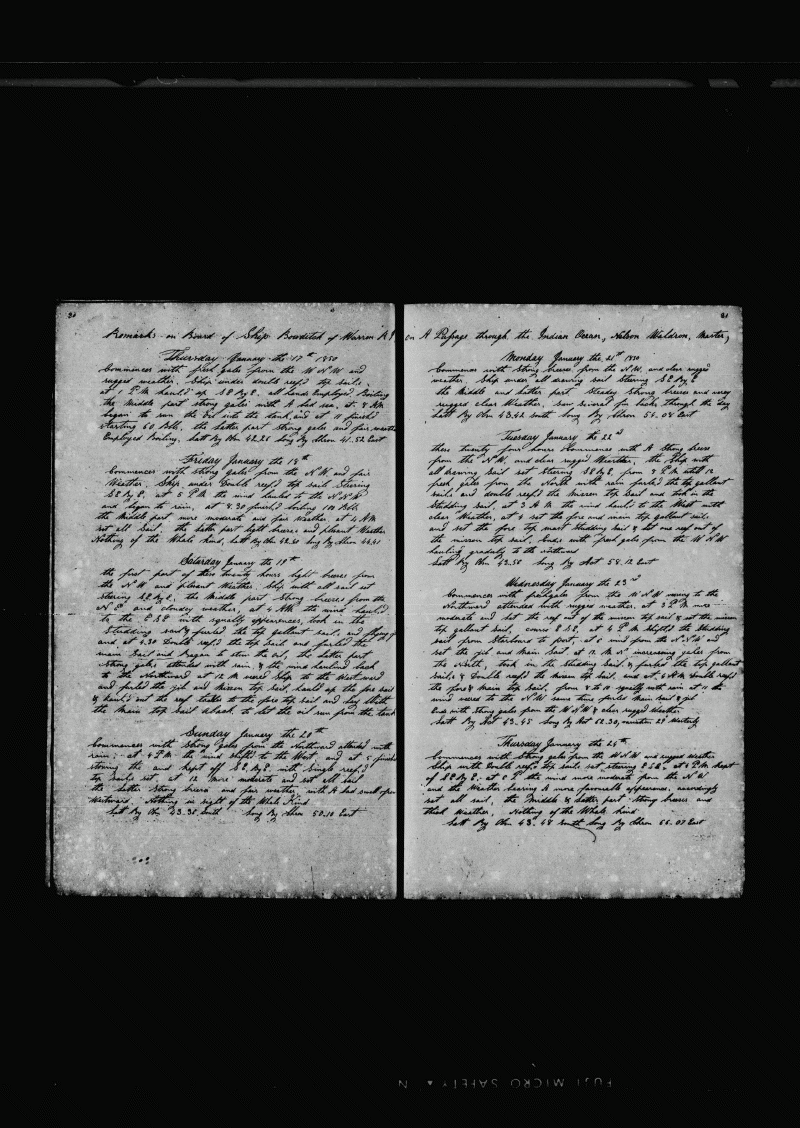 30
Remarks on Board of Ship Bowditch of Warren R I
Thursday January the 17th 1850
Commences with fresh gales from the W N W and
rugged weather. Ship under double reef'd top sails
at 1 P.M. hauld up S E By E. all hands Employed Boiling
the Middle part strong gales with A bad sea, at 8 A.M.
began to run the Oil into the tank, and at 11 finish'd
starting 60 Bbls, the latter part strong gales and fair weather
Employed Boiling, Latt By Obn 42.26 Long By Chron 41.52 East
Friday January the 18th
Commences with strong gales from the N W and fair
Weather. Ship under Double reef'd top sail Steering
S E By E, at 5 P M the wind hauled to the N N W
and began to rain, at 8.30 finish'd boiling 100 Bbls
the Middle part more moderate and fair Weather at 4 A M
set all sail, the latter part light breeses and pleasant Weather
Nothing of the Whale Kind, Latt By Obn 42.50 Long By Chron 44.41
Saturday January the 19th
the first part of these twenty hours light breeses from
the N W and pleasant Weather. Ship with all sail set
Steering S E By E, the Middle part Strong breeses from the
N E and cloudy weather, at 4 AM the wind haul'd
to the E S E with squally apperences, took in the
Studding sail & furled the top gallant sail, and
and at 4.30 Double reef'd the top Sail and furled the
main Sail and began to stow the oil, the latter part
strong gales attended with rain, & the wind haul'd back
to the Northward at 12 M wered Ship to the Westward
and furled the jib and Mizzen top sail, hauld up the fore sail
& haul'd out the reef takles to the fore top sail and Lay With
the Main top sail Aback to let the oil run from the tank
Sunday January the 20th
Commences with Strong gales from the Northward attended with
rain, at 4 P M the wind shifted to the West and at 5 finish'd
stowing the and kept off S E By E with single reef'd
top sails set, at 12 more moderate and set all sail
the latter Strong breese and fair weather with A bad swell from
Westward. Nothing in sight of the Whale Kind
Latt By Obn 43.38 South Long By Chron 50.10 East
31
on A Passage through the Indian Ocean, Nelson Waldron, Master,
Monday January the 21st 1850
Commences with Strong breeses from the N.W. and clear rugged
weather Ship under all drawing sail Steering S E By E
the Middle and latter part Steady Strong breeses and very
rugged clear Weather, saw several fin backs through the day
Latt By Obn 43.42 South Long By Chron 54.08 East
Tuesday January the 22nd
these twenty four hours Commences with A Strong breese
from the N.W. and clear rugged Weather, the Ship with
all drawing sail set Steering S E By E, from 8 P.M. until 12
fresh gales from the North with rain furled the top gallant
sails and double reef'd the Mizzen top sail and took in the
Studding Sail, at 3 A.M. the wind hauld to the West with
clear Weather, at 4 set the fore and main top gallant sails
and set the fore top mast studding sail & let one reef out of
the mizzen top sail. Ends with fresh gales from the W N W
hauling gradualy to the northward
Latt By Obn 43.50 Long By Act 58.12 East
Wednesday January the 23rd
Commences with fresh gales from the W N W veering to the
Northward attended with rugged weather, at 3 P M more
moderate and set the reef out of the mizzen top sail & set the mizzen
top gallant sail, course E S E, at 4 P M shifted the Studding
sail from Starboard to port, at 6 wind from the N N W and
set the jib and Main Sail at 12 M N increasing gales from
the North, took in the Studding Sail & furled the top gallant
sails, & Double reef'd the Mizzen top sail, and at 6 A M double reef'd
the fore & Main top sail, from 8 to 10 squally with rain at 11 the
wind veered to the N W same time furled Main sail & jib
Ends with Strong gales from the W N W & clear rugged Weather
Latt By Act 43.45 Long By Act 62.30, variation 29 Westerly
Thursday January the 24th
Commences with strong gales from the W N W and rugged Weather
Ship with Double reef'd top sails set steering E S E at 6 P.M. kept
of S E By E. at 8 P. the wind more moderate from the N W
and the Weather bearing A more favourable apperence, accordingly
set all sail, the Middle & latter part strong breeses and
thick Weather, Nothing of the Whale Kind
Latt By Obn 43.48 South Long By Chron 66.07 East
FUJI MICRO SAFETY ▲ N